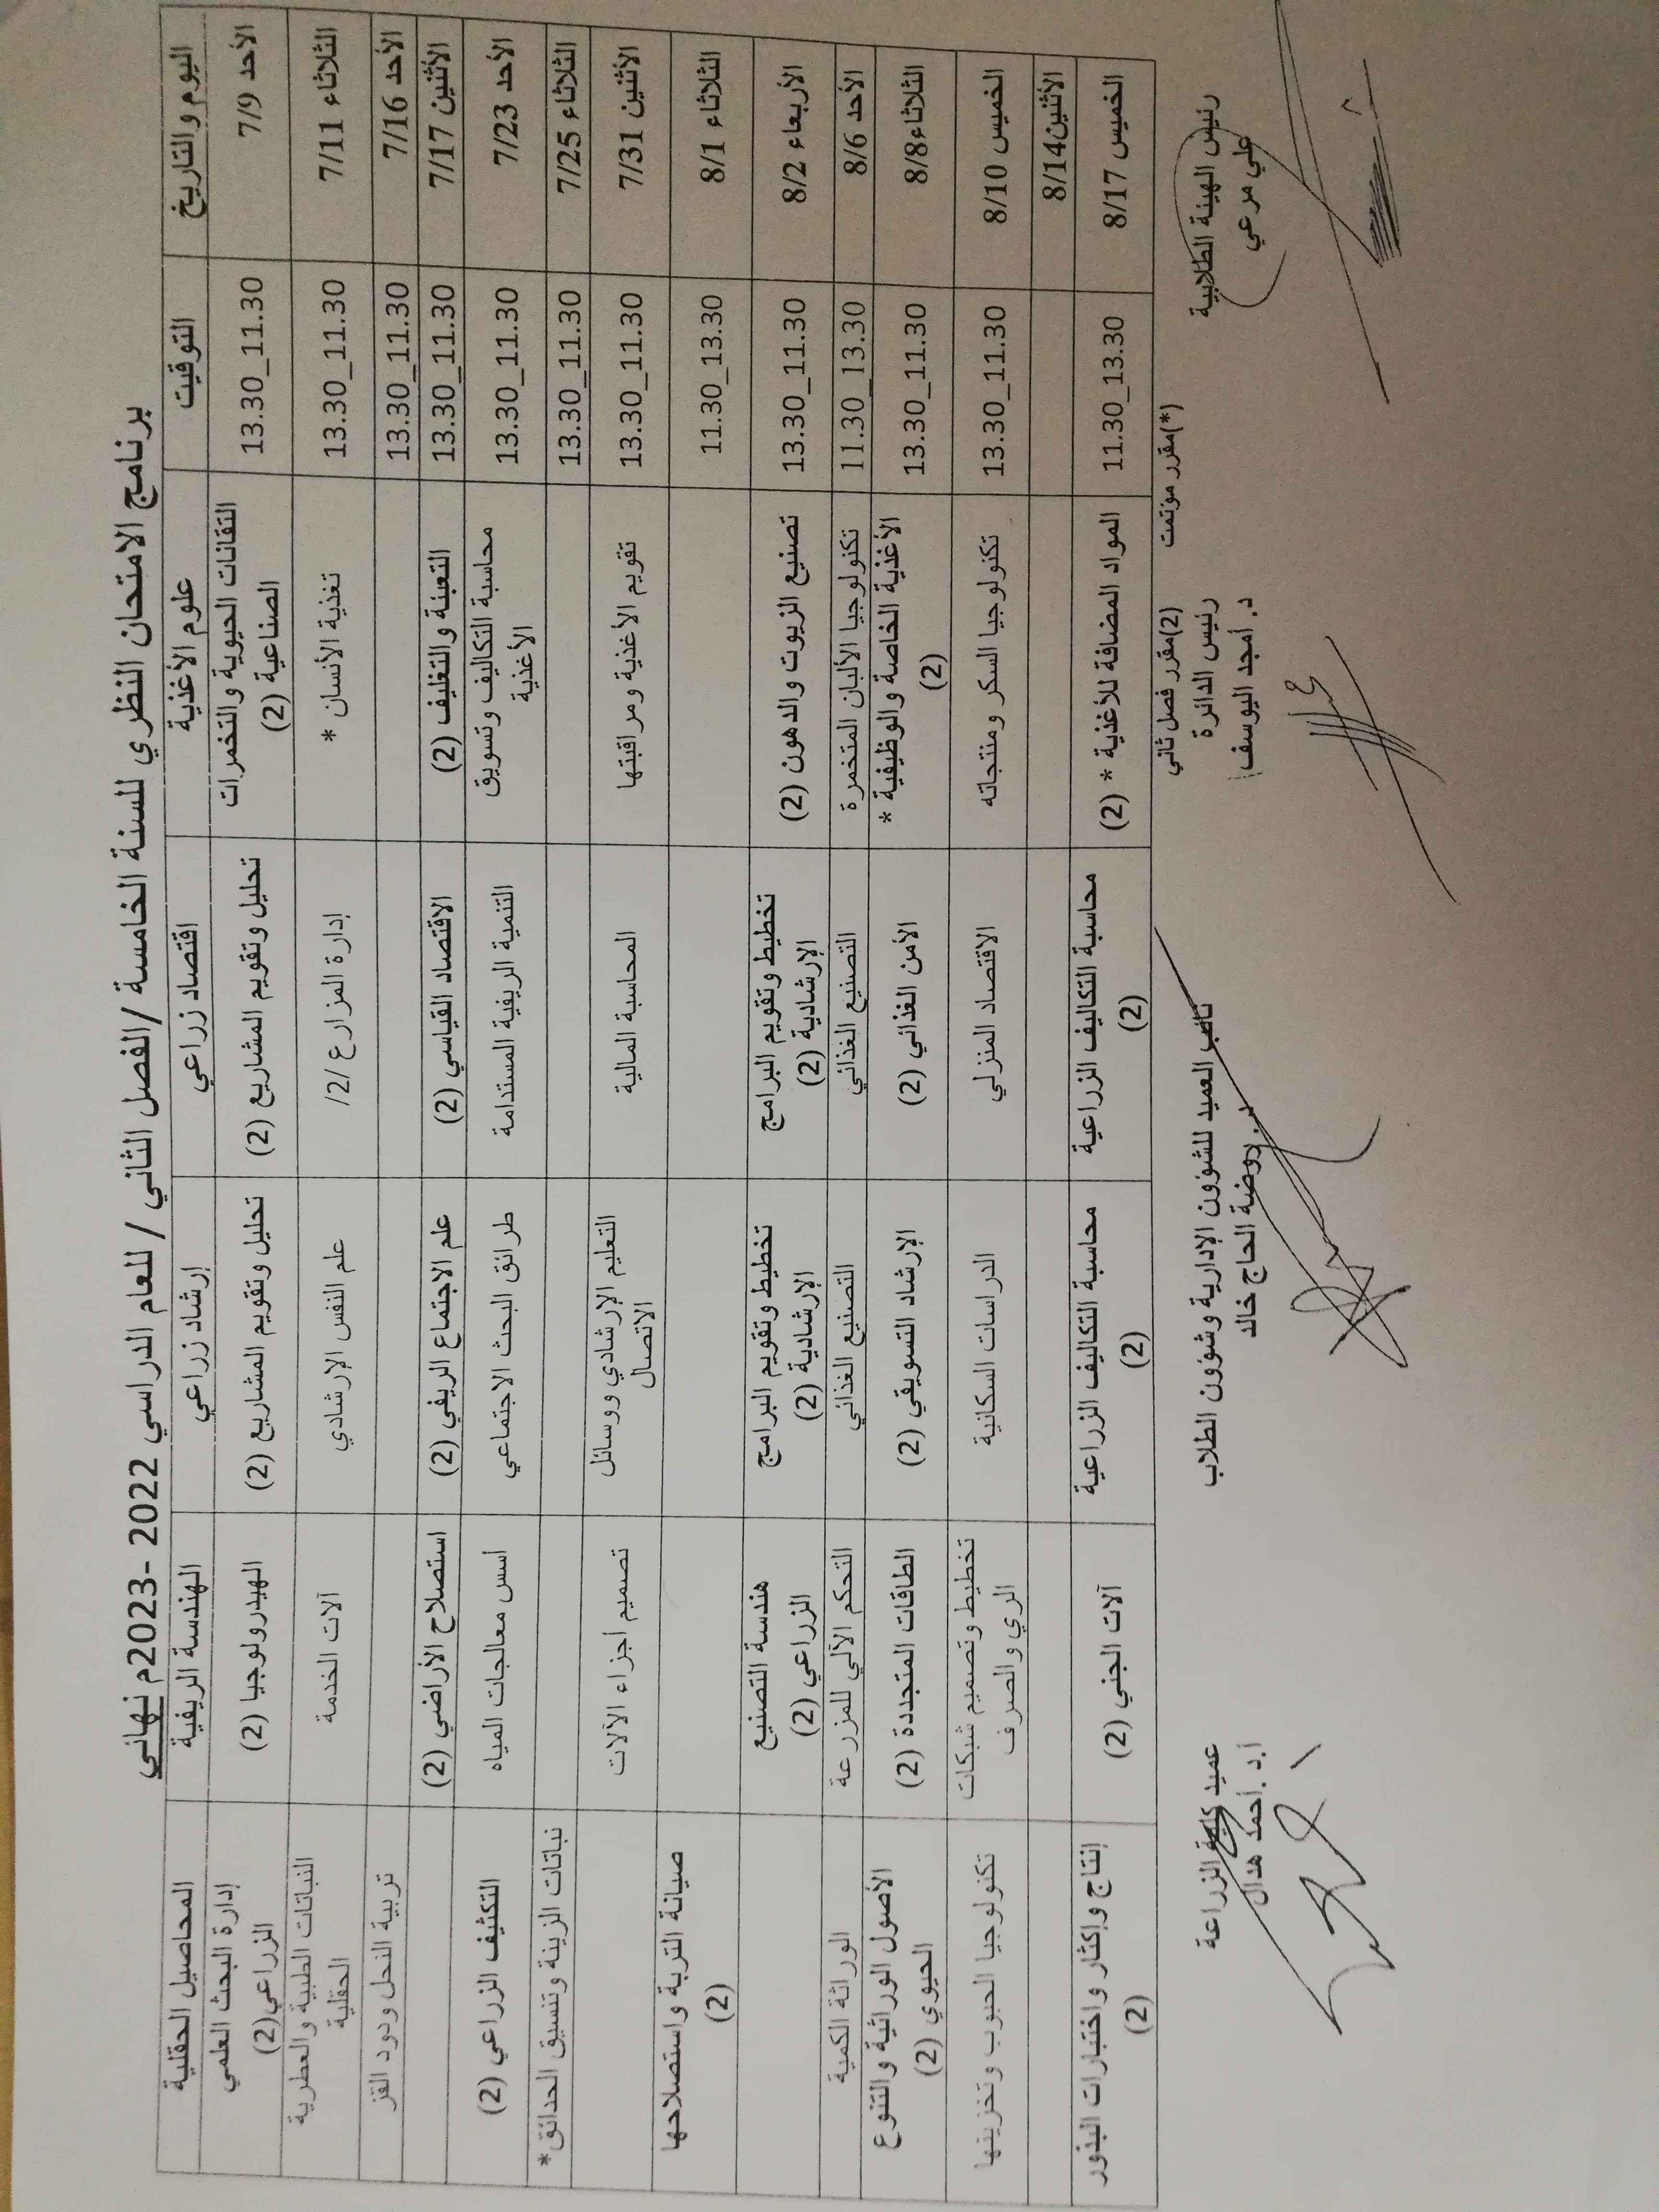 برنامج الامتحان النظري للسنة الخامسة /الفصل الثاني / للعام الدراسي 2022 -2023م نهائي
اليوم والتاريخ التوقيت علوم الأغذية اقتصاد زراعي إرشاد زراعي الهندسة الريفية المحاصيل الحقلية
الأحد 7/9 13.30_11.30 التقانات الحيوية والتخمرات الصناعية (2) تحليل وتقويم المشاريع (2) تحليل وتقويم المشاريع (2) الهيدرولوجيا (2) إدارة البحث العلمي الزراعي(2)
الثلاثاء 7/11 13.30_11.30 تغذية الأنسان * إدارة المزارع /2/ علم النفس الإرشادي آلات الخدمة النباتات الطبية والعطرية الحقلية
الأحد 7/16 13.30_11.30 تربية النحل ودود القز
الأثنين 7/17 13.30_11.30 التعبئة والتغليف (2) الاقتصاد القياسي (2) علم الاجتماع الريفي (2) استصلاح الأراضي (2)
الأحد 7/23 13.30_11.30 محاسبة التكاليف وتسويق الأغذية التنمية الريفية المستدامة طرائق البحث الاجتماعي أسس معالجات المياه التكثيف الزراعي (2)
الثلاثاء 7/25 13.30_11.30 نباتات الزينة وتنسيق الحدائق*
الأثنين 7/31 13.30_11.30 تقويم الأغذية ومراقبتها المحاسبة المالية التعليم الإرشادي ووسائل الاتصال تصميم أجزاء الآلات
الثلاثاء 8/1 11.30_13.30 صيانة التربة واستصلاحها (2)
الأربعاء 8/2 13.30_11.30 تصنيع الزيوت والدهون (2) تخطيط وتقويم البرامج الإرشادية (2) تخطيط وتقويم البرامج الإرشادية (2) هندسة التصنيع الزراعي (2)
الأحد 8/6 11.30_13.30 تكنولوجيا الألبان المتخمرة التصنيع الغذائي التصنيع الغذائي التحكم الآلي للمزرعة الوراثة الكمية
الثلاثاء8/8 13.30_11.30 الأغذية الخاصة والوظيفية * (2) الأمن الغذائي (2) الإرشاد التسويقي (2) الطاقات المتجددة (2) الأصول الوراثية والتنوع الحيوي (2)
الخميس 8/10 13.30_11.30 تكنولوجيا السكر ومنتجاته الاقتصاد المنزلي الدراسات السكانية تخطيط وتصميم شبكات الري والصرف تكنولوجيا الحبوب وتخزينها
الأثنين8/14
الخميس 8/17 11.30_13.30 المواد المضافة للأغذية * (2) محاسبة التكاليف الزراعية (2) محاسبة التكاليف الزراعية (2) آلات الجني (2) إنتاج وإكثار واختبارات البذور (2)
(*)مقرر مؤتمت (2)مقرر فصل ثاني
رئيس الهيئة الطلابية رئيس الدائرة نائب العميد للشؤون الإدارية وشؤون الطلاب عميد كلية الزراعة
علي مرعي د. أمجد اليوسف د. روضة الحاج خالد أ.د .أحمد هدال